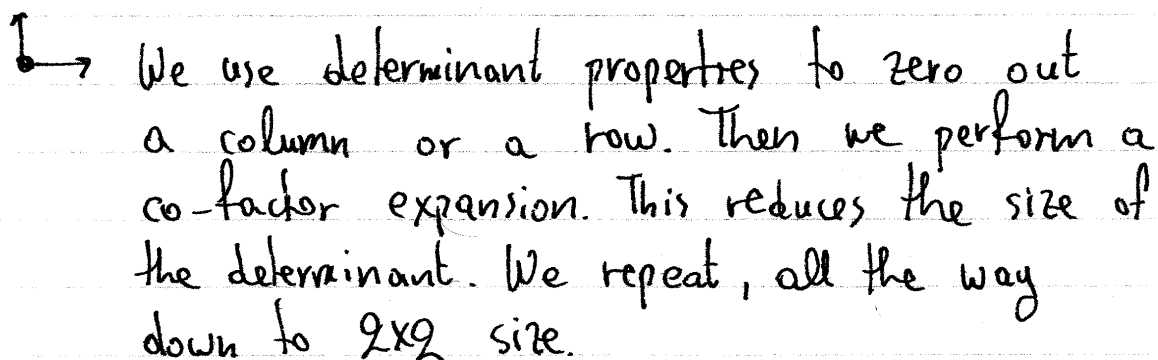 We use determinant properties to zero out
a column or a row. Then we perform a
co-factor expansion. This reduces the size of
the determinant. We repeat, all the way
down to 2x2 size.